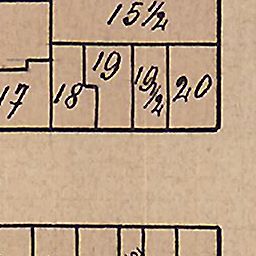 15½
17 18 19 19½ 20